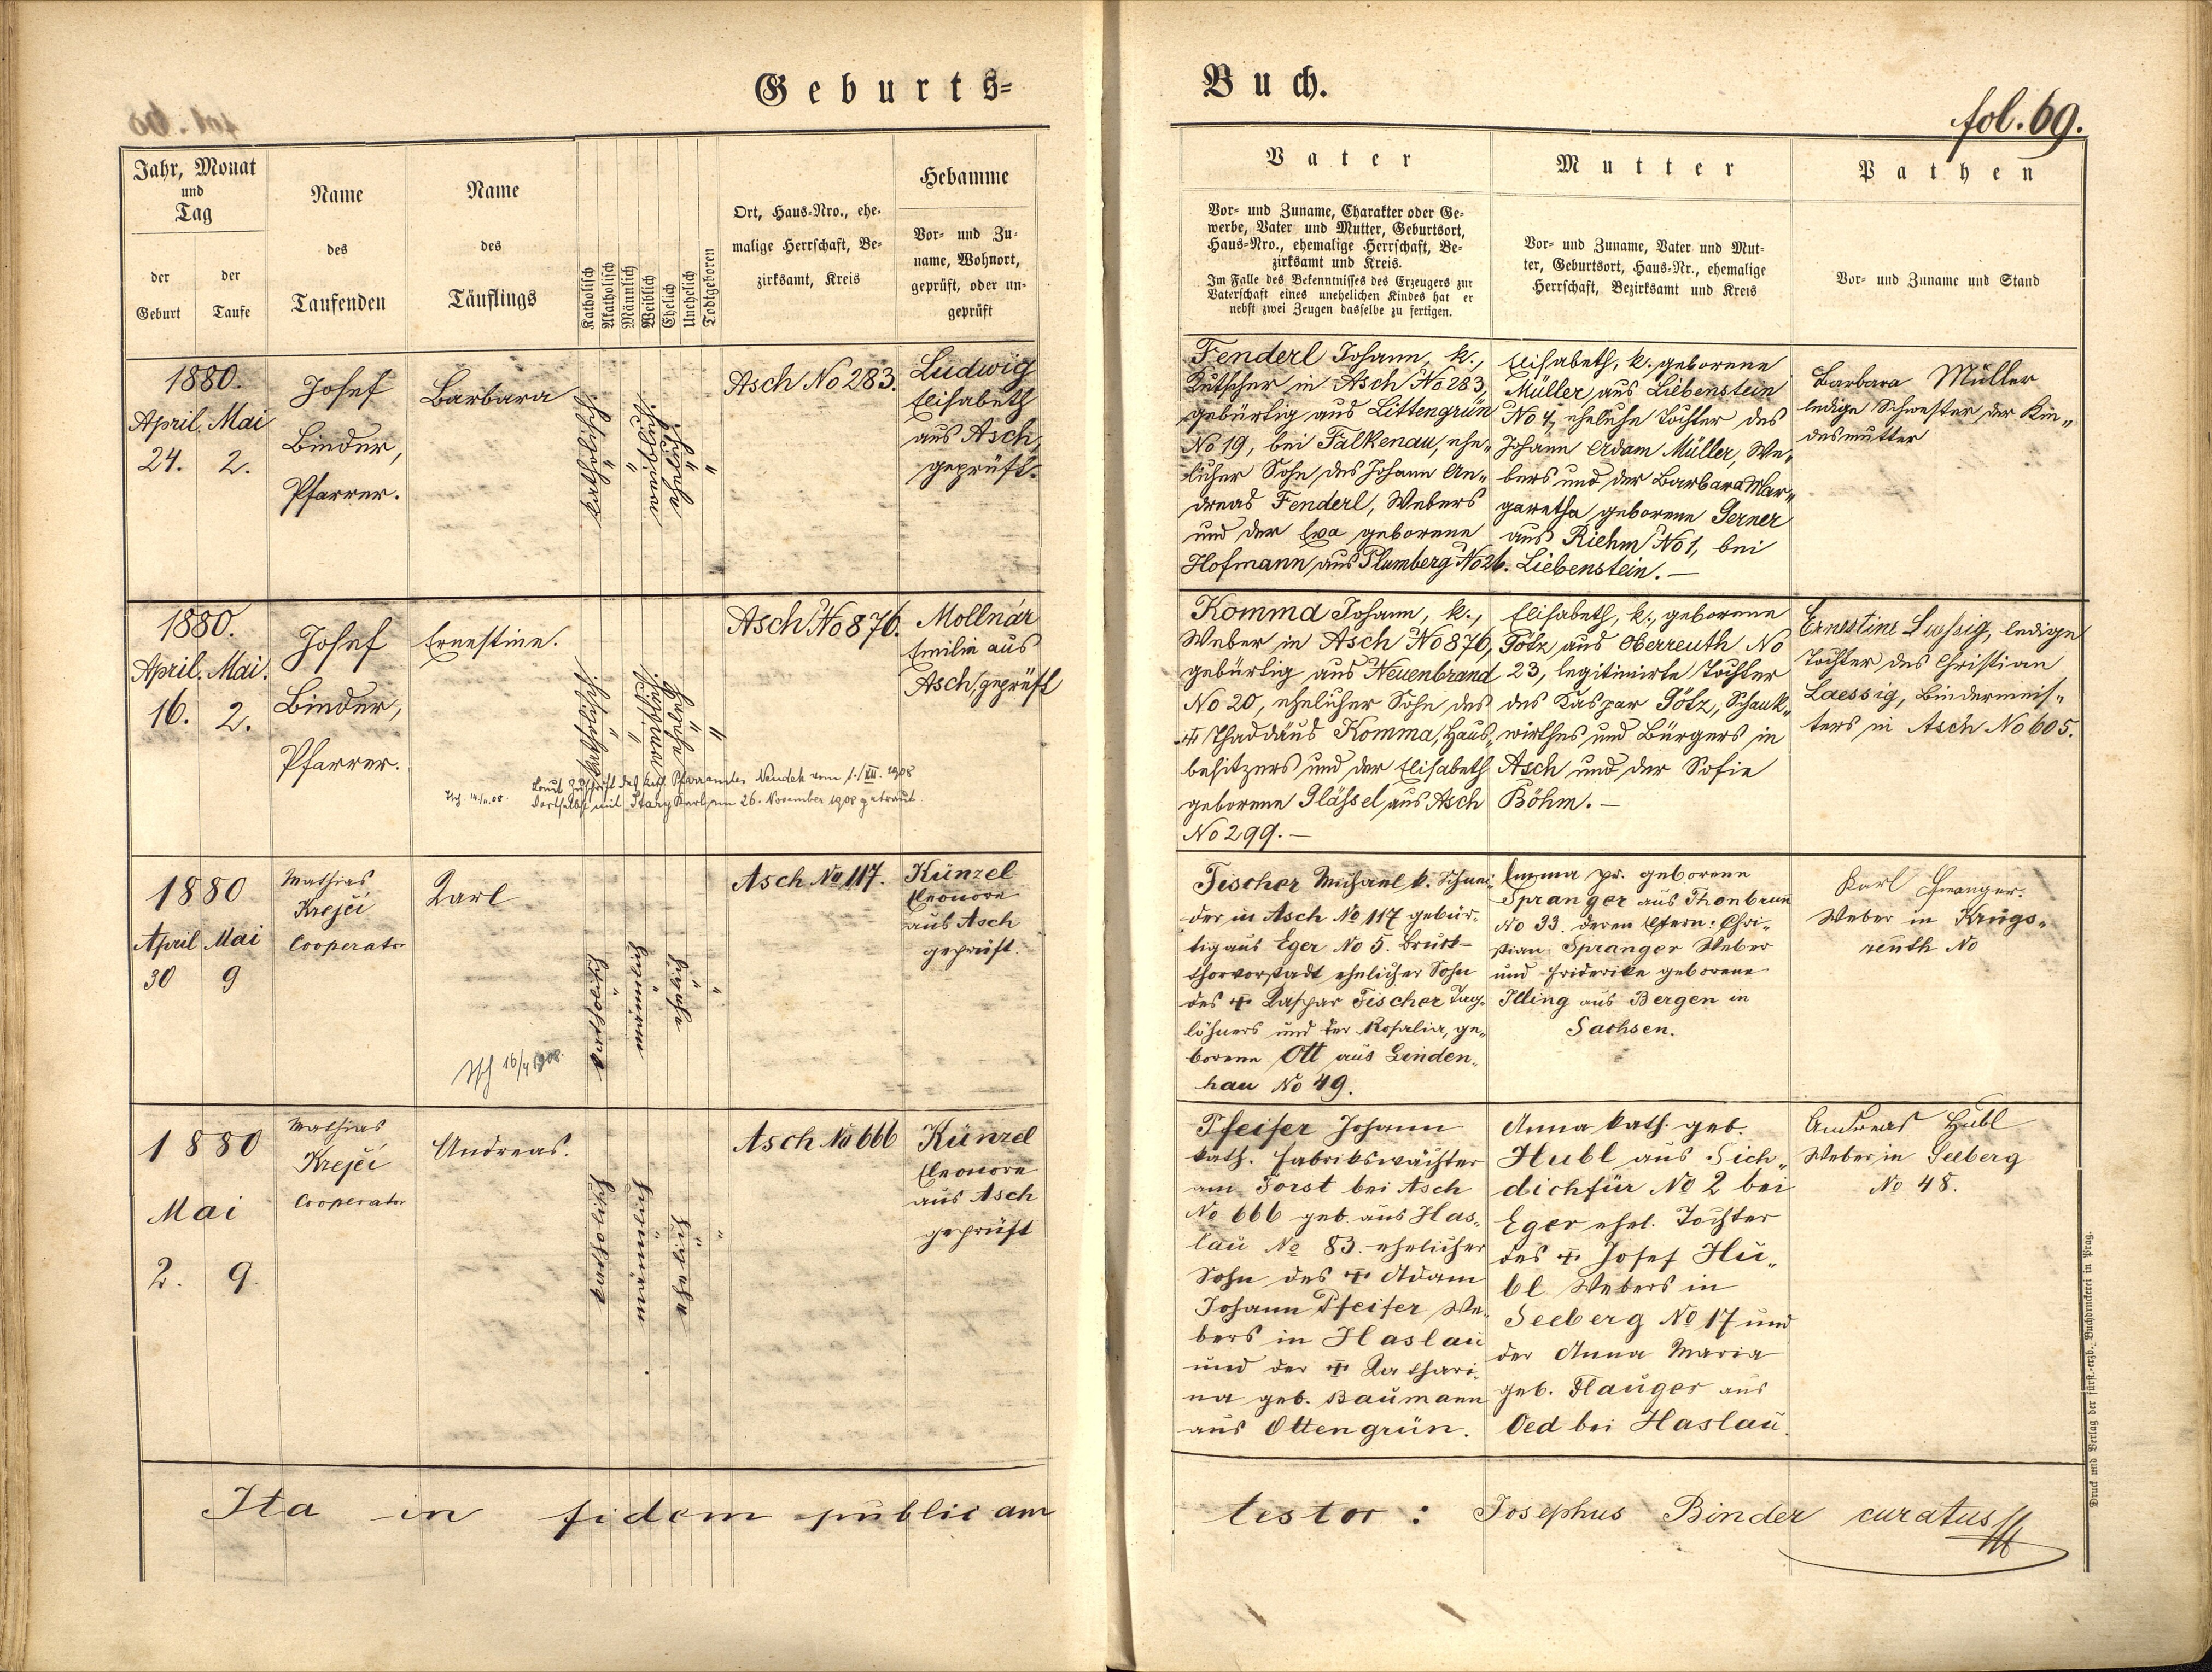 Geburts=
Buch.
fol. 69.
Jahr, Monat
und
Tag
der
Geburt
der
Taufe
Name
des
Taufenden
Name
des
Täuflings
Katholisch
Akatholisch
Männlich
Weiblich
Ehelich
Unehelich
Todtgeboren
Ort, Haus-Nro., ehe-
malige Herrschaft, Be-
zirksamt, Kreis
Hebamme
Vor- und Zu-
name, Wohnort,
geprüft, oder un-
geprüft
Vater
Vor- und Zuname, Charakter oder Ge-
werbe, Vater und Mutter, Geburtsort,
Haus-Nro., ehemalige Herrschaft, Be-
zirksamt und Kreis.
Im Falle des Bekenntnisses des Erzeugers zur
Vaterschaft eines unehelichen Kindes hat er
nebst zwei Zeugen dasselbe zu fertigen.
Mutter
Vor- und Zuname, Vater und Mut-
ter, Geburtsort, Haus-Nr., ehemalige
Herrschaft, Bezirksamt und Kreis
Pathen
Vor- und Zuname und Stand
1880.
April. Mai
24. 2.
Josef
Binder,
Pfarrer.
Barbara
katholisch
"
"
"
Asch No 283.
Ludwig
Elisabeth
aus Asch,
geprüft.
Fenderl Johann, k.,
Kutscher in Asch No 283,
gebürtig aus Littengrün
No 19, bei Falkenau, ehe„
licher Sohn des Johann An„
dreas Fenderl, Webers
und der Eva geborene
Hofmann aus Plumberg No 26.
Elisabeth, k. geborene
Müller aus Liebenstein
No 4, eheliche Tochter des
Johann Adam Müller, We„
bers und der Barbara Mar„
garetha geborene Gerner
aus Riehm No 1, bei
Liebenstein. —
Barbara Müller
ledige Schwester der Kin„
desmutter
1880.
April. Mai.
16. 2.
Josef
Binder,
Pfarrer.
Ernestine.
katholisch
"
"
"
Laut Zuschrift des kath. Pfarramtes Neudek vom 1./XII. 1908
dortselbst mit Karl am 26. November 1908 getraut.
Asch No 876.
Mollnár
Emilie aus
Asch, geprüft
Kommd Johann, k.,
Weber in Asch No 876,
gebürtig aus Neuenbrand
No 20, ehelicher Sohn des
☩ Thaddäus Komma, Haus„
besitzers und der Elisabeth
geborene Glässel aus Asch
No 299. —
Elisabeth, k., geborene
Götz aus Oberreuth No
23, legitimirte Tochter
des Kaspar Götz, Schank„
wirthes und Bürgers in
Asch und der Sofie
Böhm. —
Ernestine Lassig, ledige
Tochter des Christian
Laessig, Bindermeis„
ters in Asch No 605.
1880
April Mai
30 9
Mathias
Krejčí
Cooperator
Karl
katholisch
"
männlich
"
"
16/4 1908.
Asch No 117.
Künzel
Eleonore
aus Asch
geprüft.
Fischer Michael k. Schnei„
der in Asch No 117 gebür„
tig aus Eger No 5. Bruck-
thorvorstadt ehelicher Sohn
des ☩ Kaspar Fischer Tag„
löhners und der Rosalia, ge„
borene Ott aus Linden„
hau No 49.
Emma pr. geborene
Spranger aus Thonbrunn
No 33. deren Eltern: Chri„
stian Spranger Weber
und Friderike geborene
Illing aus Bergen in
Sachsen.
Karl
Weber in Krugs„
reuth No
1880
Mai
2. 9.
Mathias
Krejčí
Cooperator
Andreas.
katholisch
"
männlich
"
"
Asch No 666
Künzel
Eleonore
aus Asch
geprüft
Pfeifer Johann
kath. Fabrikswächter
am Forst bei Asch
No 666 geb. aus Has„
lau No 83. ehelicher
Sohn des ☩ Adam
Johann Pfeifer We„
bers in Haslau
und der ☩ Kathari„
na geb. Baumann
aus Ottengrün.
Anna kath. geb.
Hubl aus Sich„
dichfür No 2 bei
Eger ehel. Tochter
des ☩ Josef Hu„
bl Webers in
Seeberg No 17 und
der Anna Maria
geb. Flauger aus
Oed bei Haslau.
Andreas Hubl
Weber in Seeberg
No 48.
Ita in fidem publicam
testor: Josephus Binder curatus
Druck und Verlag der fürst.-erzb. Buchdruckerei in Prag.